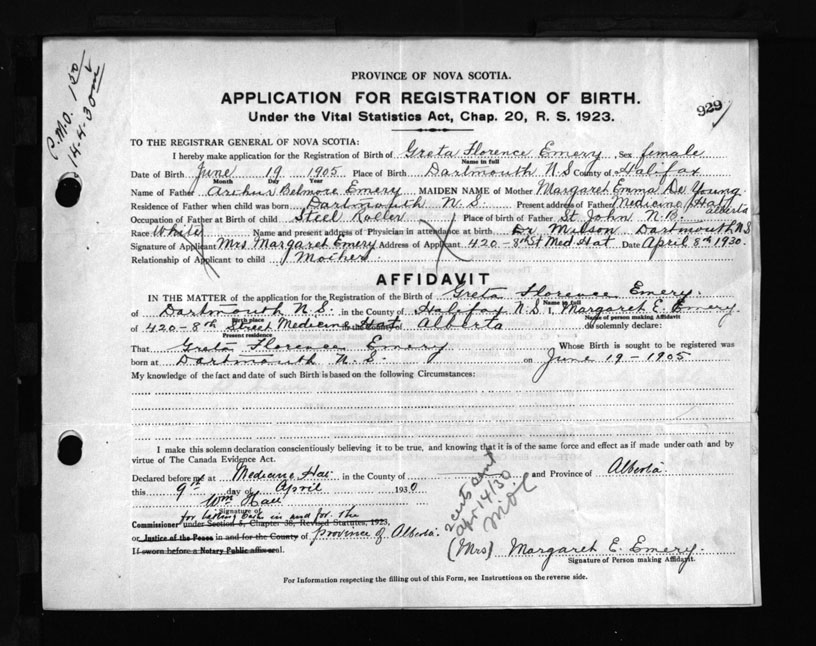 P.M.O. 1.50
14-4-30
929
PROVINCE OF NOVA SCOTIA.
APPLICATION FOR REGISTRATION OF BIRTH.
Under the Vital Statistics Act, Chap. 20, R. S. 1923.
TO THE REGISTRAR GENERAL OF NOVA SCOTIA:
I hereby make application for the Registration of Birth of Greta Florence Emery Sex female
Name in full
Date of Birth June 19 1905 Place of Birth Dartmouth N S County of Halifax
Month Day Year
Name of Father Arthur Belmore Emery MAIDEN NAME of Mother Margaret Emma De Young
Residence of Father when child was born Dartmouth N. S. Present address of Father Medicine Hat Alberta
Occupation of Father at Birth of child Steel Roller Place of birth of Father St John N. B.
Race White Name and present address of Physician in attendance at birth Dr Milson Dartmouth N S
Signature of Applicant Mrs Margaret Emery Address of Applicant 420-8th St Med. Hat Date April 8th 1930.
Relationship of Applicant to child Mother.
AFFIDAVIT
IN THE MATTER of the application for the Registration of the Birth of Greta Florence Emery.
Name in full
of Dartmouth N. S. in the County of Halifax N. S. I, Margaret E. Emery.
Birth place Name of person making Affidavit
of 420-8th Street Medicine Hat Alberta do solemnly declare:
Present residence
That Greta Florence Emery Whose Birth is sought to be registered was
born at Dartmouth N. S. on June 19-1905
My knowledge of the fact and date of such Birth is based on the following Circumstances:
I make this solemn declaration conscientiously believing it to be true, and knowing that it is of the same force and effect as if made under oath and by
virtue of The Canada Evidence Act.
Declared before me at Medicine Hat in the County of and Province of Alberta
this 9th day of April 1930
Wm Hall
Signature of
in and for the
Commissioner under Section 5, Chapter 38, Revised Statutes, 1923,
or Justice of the Peace in and for the County of province of Alberta.
If sworn before a Notary Public affix seal.
Apr 14/30
(Mrs) Margaret E. Emery.
Signature of Person making Affidavit.
For Information respecting the filling out of this Form, see Instructions on the reverse side.